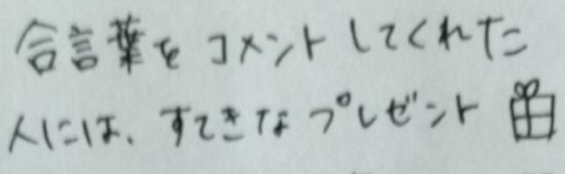 合言葉をコメントしてくれた
人には、すてきなプレゼント🎁